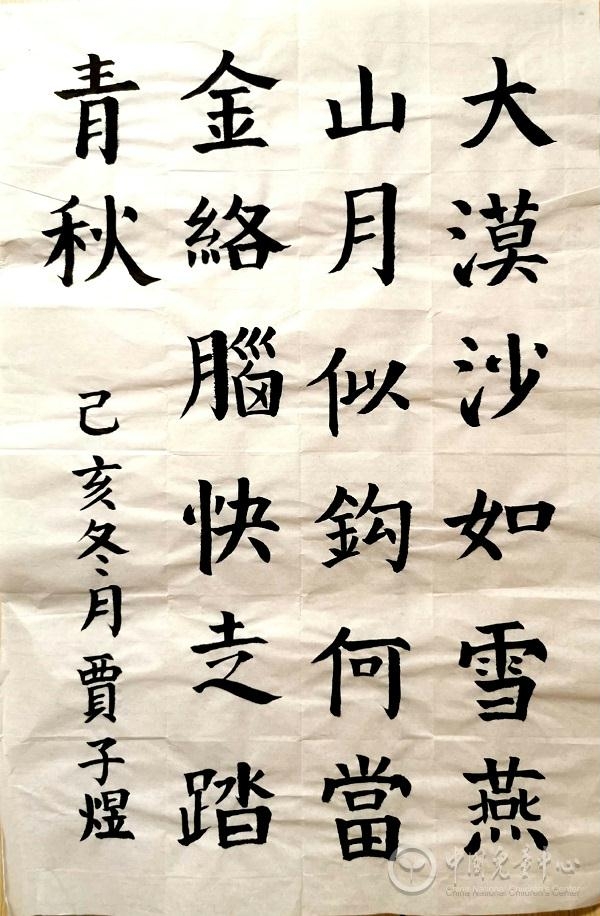 大漠沙如雪燕
山月似鈎何當
金絡腦快走踏
青秋
己亥冬月賈子煜
中國兒童中心
China National Children's Center